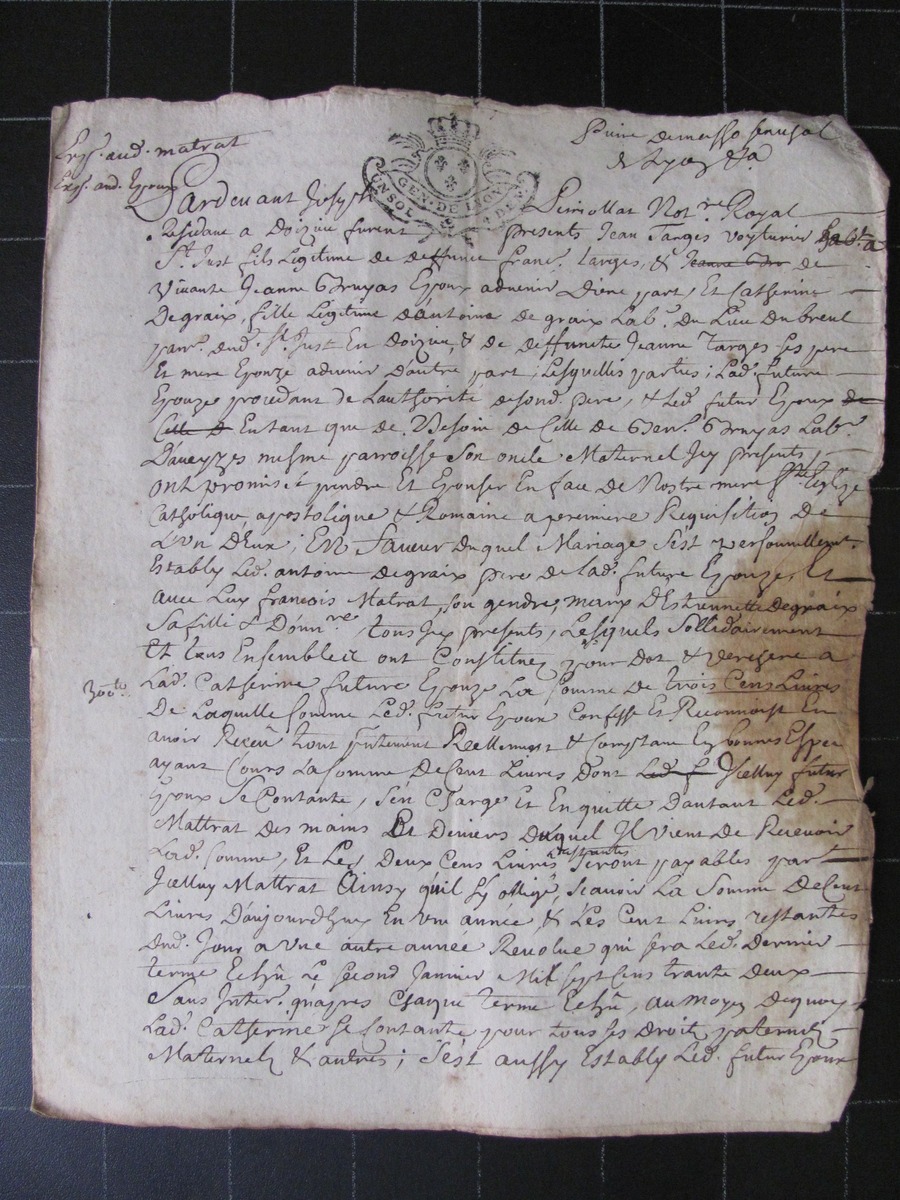 Exp. aud. matrat
Exp. aud. Epoux
GEN. DE LYON
Pardevant Joseph Not.re Royal
Residant a Doizieu furent presents Jean Targes voyturier
St. Just fils Legitime de deffunct Franc. Targes, & Jeanne de
vivante Jeanne Epoux advenir Dune part, Et Catherine
Degraix, fille Legitime d'antoine de graix Lab.r Du Lieu Dubreul
parr. dud. St. Just En doizieu, & de deffuncte Jeanne Targes ses pere
Et mere Epouze advenir Dautre part, Lesquelles parties; Lad. future
Epouze procedant de Lauthorité de sond. pere, & Led. futur Epoux de
Celle Entant que de Besoin de Celle de Lab.r
D'aveyzes mesme parroisse Son oncle Maternel Icy presents,
ont promis prendre Et Epouser En face de Nostre mere Ste. Eglize
Catholique, apostolique & Romaine a premiere Requisition De
L'un D'Eux; EN faveur Duquel Mariage s'est personnellemt.
Estably Led. antoine degraix pere de Lad. future Epouze, Et
avec Luy francois Matrat, son gendre, marry D'Estiennette Degraix
Sa fille & Donn.re, tous Icy presents, Lesquels Sollidairement
Et tous Ensemble ont Constitué pour Dot & verchere a
300 l.
Lad. Catherine future Epouze La somme De trois Cens Livres
De Laquelle Somme Led. futur Epoux Confesse Et Reconnoist En
avoir Receu tout putement Reellement & Comptant En bonnes Espec
ayant Cours La somme De Cent Livres Dont Led. f Icelluy futur
Epoux Se Contante, S'en Charge Et En quitte D'autant Led.
Mattrat Des mains Et Deniers Duquel Il vient De Recevoir
Lad. Somme, Et Les Deux Cens Livres restantes seront payables par
Icelluy Mattrat Ainsy qu'il s'y oblige, Scavoir La Somme De Cent
Livres D'aujourd'huy En une année, & Les Cent Livres restantes
Dud. Jour a une autre année Revolue qui sera Led. Dernier
terme Echû Le Second Janvier Mil sept Cens trante Deux
Sans Inter. qu'apres Chaque terme Echû, au moyen dequoy
Lad. Catherine Se Contante pour tous ses Droits paternels
Maternels & autres; S'est aussy Estably Led. futur Epoux